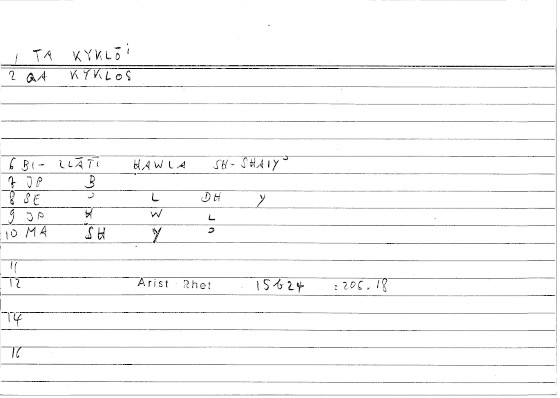 1 TA KYKLŌI
2 QA KYKLOS
6 BI- LLĀTĪ ḤAWLA SH-SHAIYʾ
7 JP B
8 SE ʾ L DH Y
9 JP Ḥ W L
10 MA SH Y ʾ
11
12 Arist Rhet 15624 :206.18
14
16